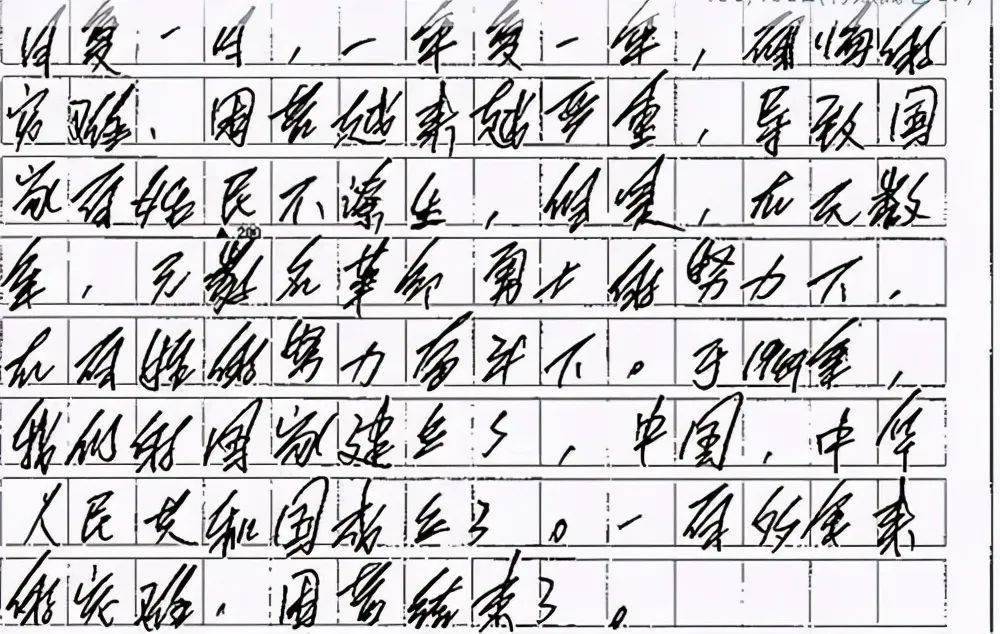 日复一日,一年复一年,的
灾难、困苦越来越严重,导致国
家百姓民不潦生,但是,在无数
▲200
年,无数名革命勇士的努力下,
在百姓的努力奋斗下。于1949年,
我们的国家建立了,中国,中华
人民共和国成立了。一百多年来
的灾难、困苦结束了。